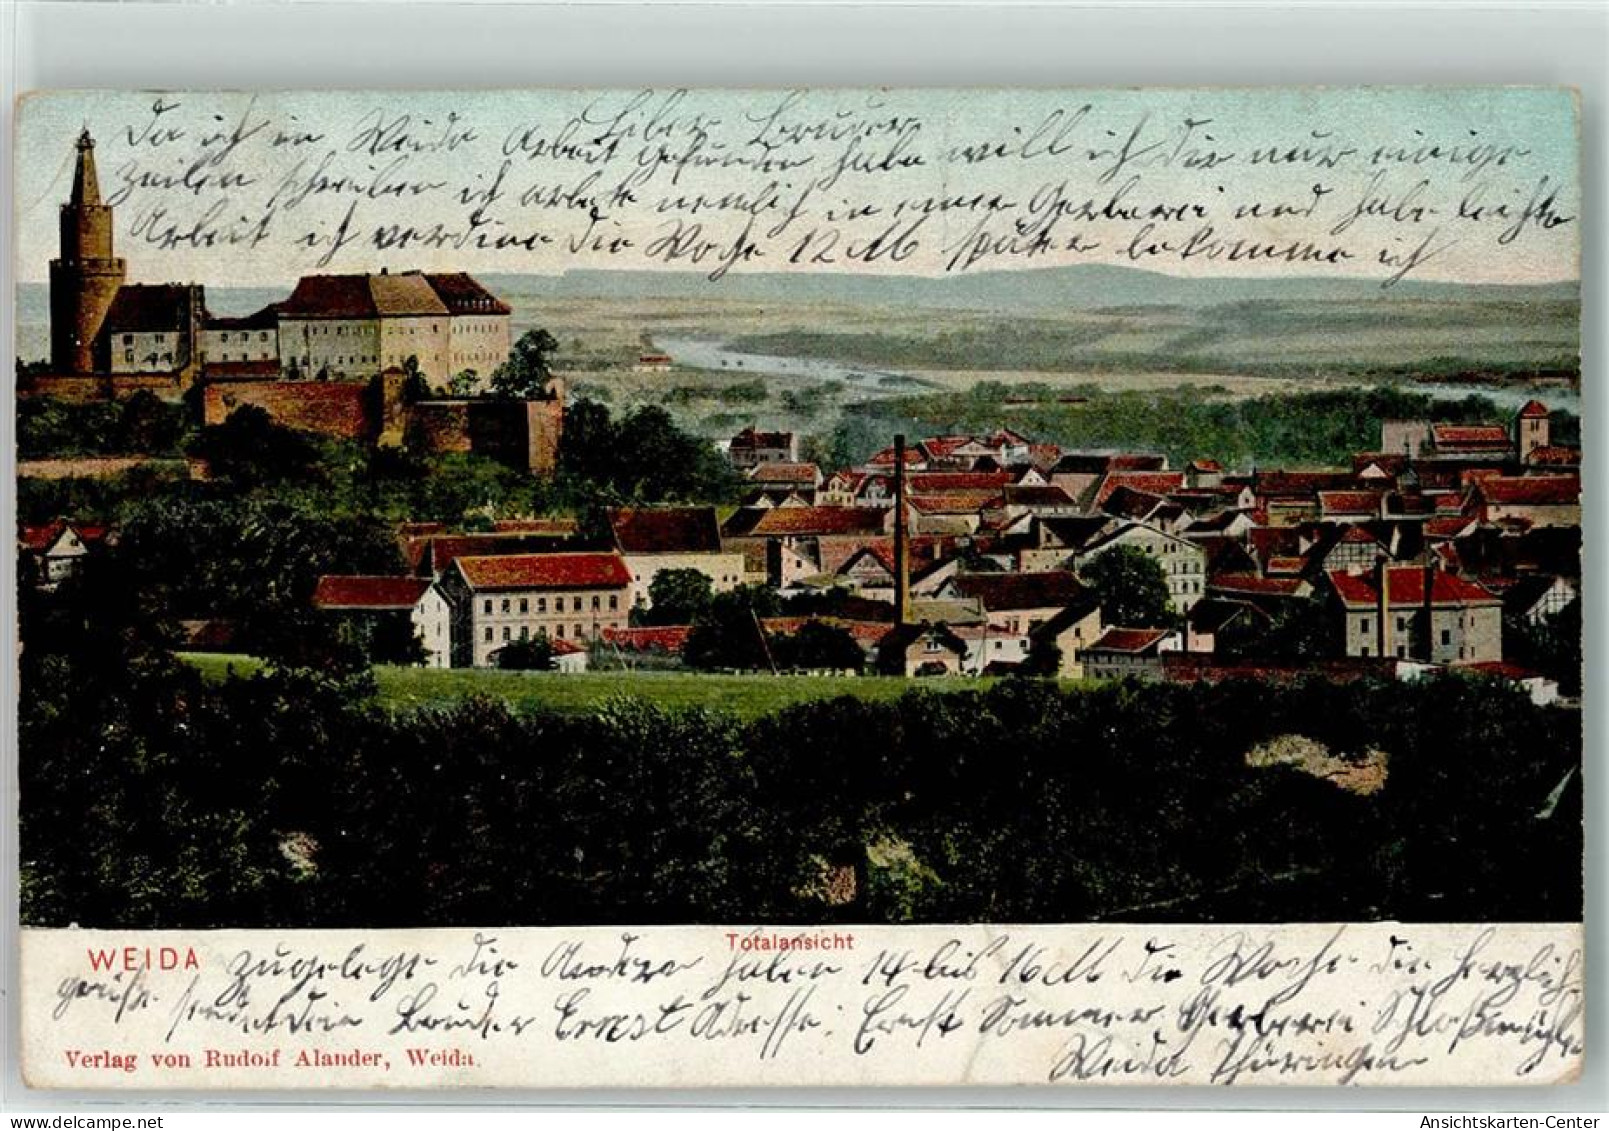 Liber Bruder
Da ich in Weida Arbeit gefunden habe will ich dir nur einige
Zeilen schreiben ich arbeite nemlich in einer Gerberei und habe leichte
Arbeit ich verdine die Woche 12 M später bekomme ich
WEIDA
Totalansicht
zugelegt die Andern haben 14 bis 16 M die Woche die Herzlich
grüße sendet dein Bruder Ernst Adresse: Ernst Sommer Gerberei Schloßmühle
Weida Thüringen
Verlag von Rudolf Alander, Weida.
Ansichtskarten-Center